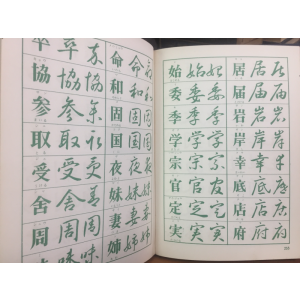 卒卒卒
協協協
参参参
取取取
受受受
舎舎舎
周周周
味味
命命命
和和和
固固固
国国国
夜夜夜
妹妹妹
妻妻妻
姉姉姉
始始始
委委委
季季季
学学学
宗宗宗
官官官
定定定
実実実
居居居
届届届
岩岩岩
岸岸岸
幸幸幸
底底底
店店店
府府府